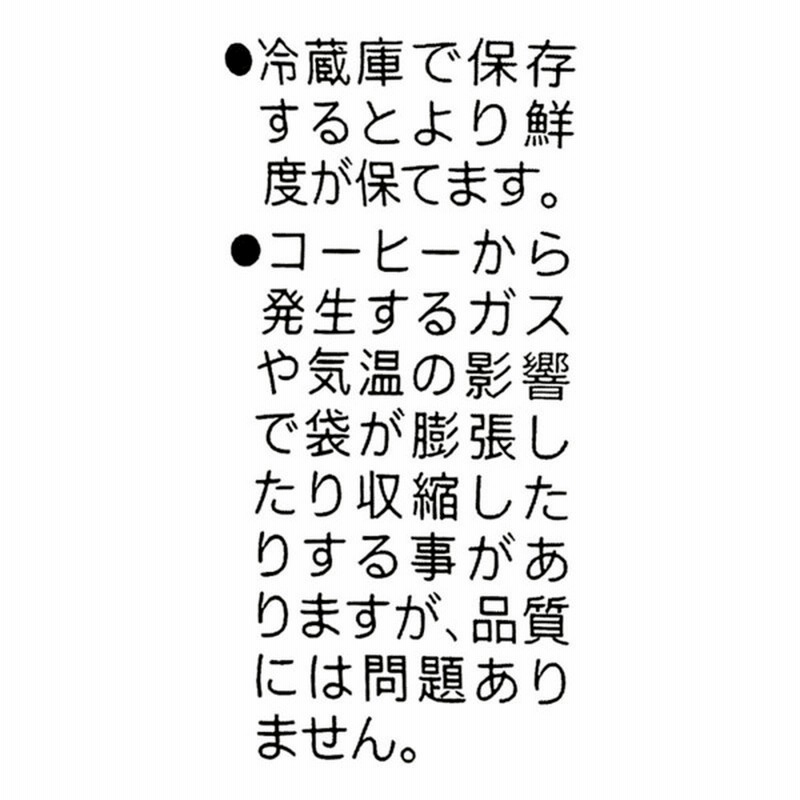 ●冷蔵庫で保存
するとより鮮
度が保てます。
●コーヒーから
発生するガス
や気温の影響
で袋が膨張し
たり収縮した
りする事があ
りますが、品質
には問題あり
ません。